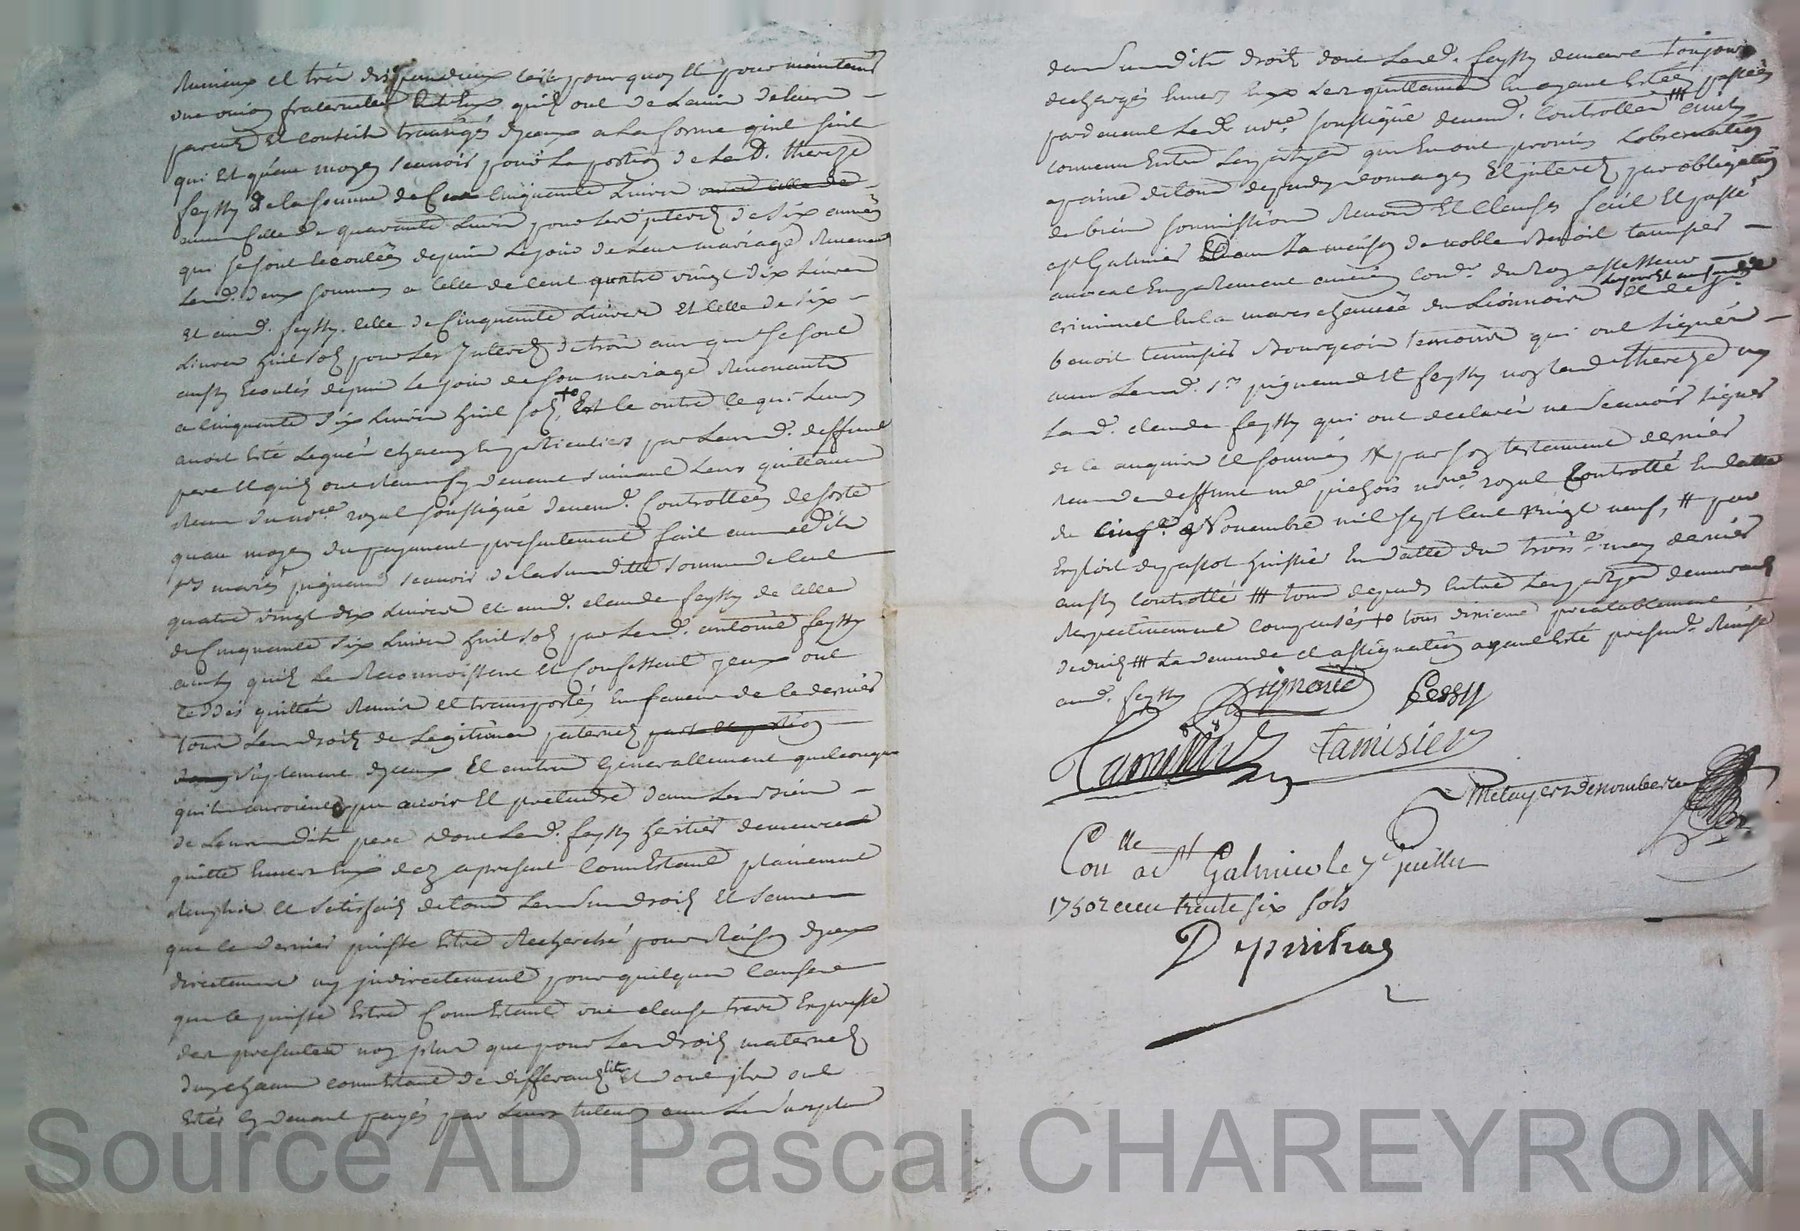 Ruineux et tres dispendieux cest pourquoy et pour maintenir
une union fraternelle entre eux quils ont de lavis de leurs
parents et conseils transigés dyceux a la forme quil suit
qui est quau moyen scavoir pour la portion de lad. thereze
feyssy de la somme de cinquante Livres
celle de quarante Livres pour les interets de six années
qui se sont ecoulées depuis le jour de leur mariage Revenant
lesd. deux sommes a celle de cent quatre vingt dix Livres
et aud. feyssy celle de Cinquante Livres et celle de six
Livres huit sols pour les Interets de trois ans qui se sont
aussy Ecoulés depuis le jour de son mariage Revenante
a cinquante six Livres huit sols et ce outre ce qui leur
avoit esté Legué a chacun en particulier par leurd. deffunt
pere et quils ont Receus cy devant suivant leurs quittances
Receue du no.re royal soussigné devem.t Controllées de sorte
quau moyen du payement presentement fait auxdits
s.rs mariés pignaud scavoir de la susditte somme de cent
quatre vingt dix Livres et aud. claude feyssy de celle
de Cinquante six Livres huit sols par led. antoine feyssy
ainsy quils le Reconnoissent et Confessent yceux ont
ceddés quittés Remis et transportés en faveur de ce dernier
tous les droits de Legitimes paternels part et portion
suplement dyceux et autres Generallement quelconques
quils auroient pu avoir et pretendre dans les biens
de leurdit pere dont led. feyssy heritier demeure
quitte envers Eux dez apresent comme Estants plainement
Remplis et satisfaits de tous les susd. droits et sans
que ce dernier puisse Estre Recherché pour Raison dyceux
directement ny indirectement pour quelque cause
que ce puisse Estre Comme Estant une clause tres Expresse
des presentes non plus que pour les droits maternels
dun chacun comme Estant de differants lits et dont ils ont
Estés cy devant payés par leurs tuteurs
dans susdits droits dont led. feyssy demeure toujours
dechargés Envers Eux les quittances en ayant Estées passées
pardevant led. no.re soussigné devem.t Controllées ainsy
convenu Entre les partyes qui en ont promis Lobservation
a paine de tous depends domages et interets par obligation
de biens soumissions Renon.on et clauses fait et passé
a st Galmier dans la maison de noble Benoit tamisier
avocat En parlement ancien cons.er du Roy assesseur
criminel En la marechaussée du Lionnois et de s.r
benoit tamisier Bourgeois temoins qui ont signés
avec led. s.r pignaud et feyssy non lad. therezé ny
led. claude feyssy qui ont declaré ne scavoir signer
de ce enquis et sommés # par son testament dernier
receu de deffunt me pichois no.re royal Controllé En datte
du cinq.e Novembre mil sept cent vingt neuf, # par
Exploit de passot huissier En datte du trois.e may dernier
aussy controllé ### tous depends Entre les partyes demeurants
Respectivement compensés
deduits ### La demande et assignation ayant Esté presentem.t Remise
aud. feyssy
Pignaud Fessy
Tamisier Tamisier
Metayer
Con.lle a st Galmier le 7e juillet
1750 Receu trente six sols
Source AD Pascal CHAREYRON